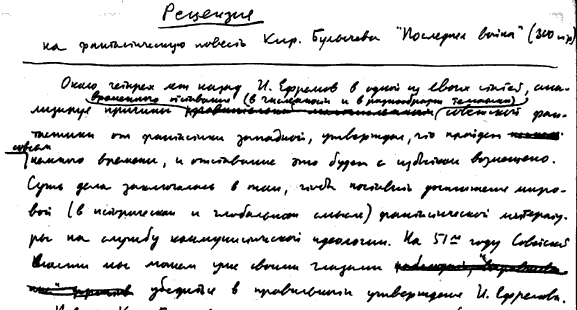 Рецензия
на фантастическую повесть Кир. Булычева "Последняя война" (300 стр)
Около четырех лет назад И. Ефремов в одной из своих статей, ана-
временного отставания (в численности и в разнообразии тематики)
лизируя причины советской фан-
тастики от фантастики западной, утверждал, что пройдет
совсем
немного времени, и отставание это будет с избытком возмещено.
Суть дела заключалась в том, чтобы поставить достижения миро-
вой (в историческом и глобальном смысле) фантастической литерату-
ры на службу коммунистической идеологии. На 51-м году Советской
власти мы можем уже своими глазами
убедиться в правильности утверждения И. Ефремова.